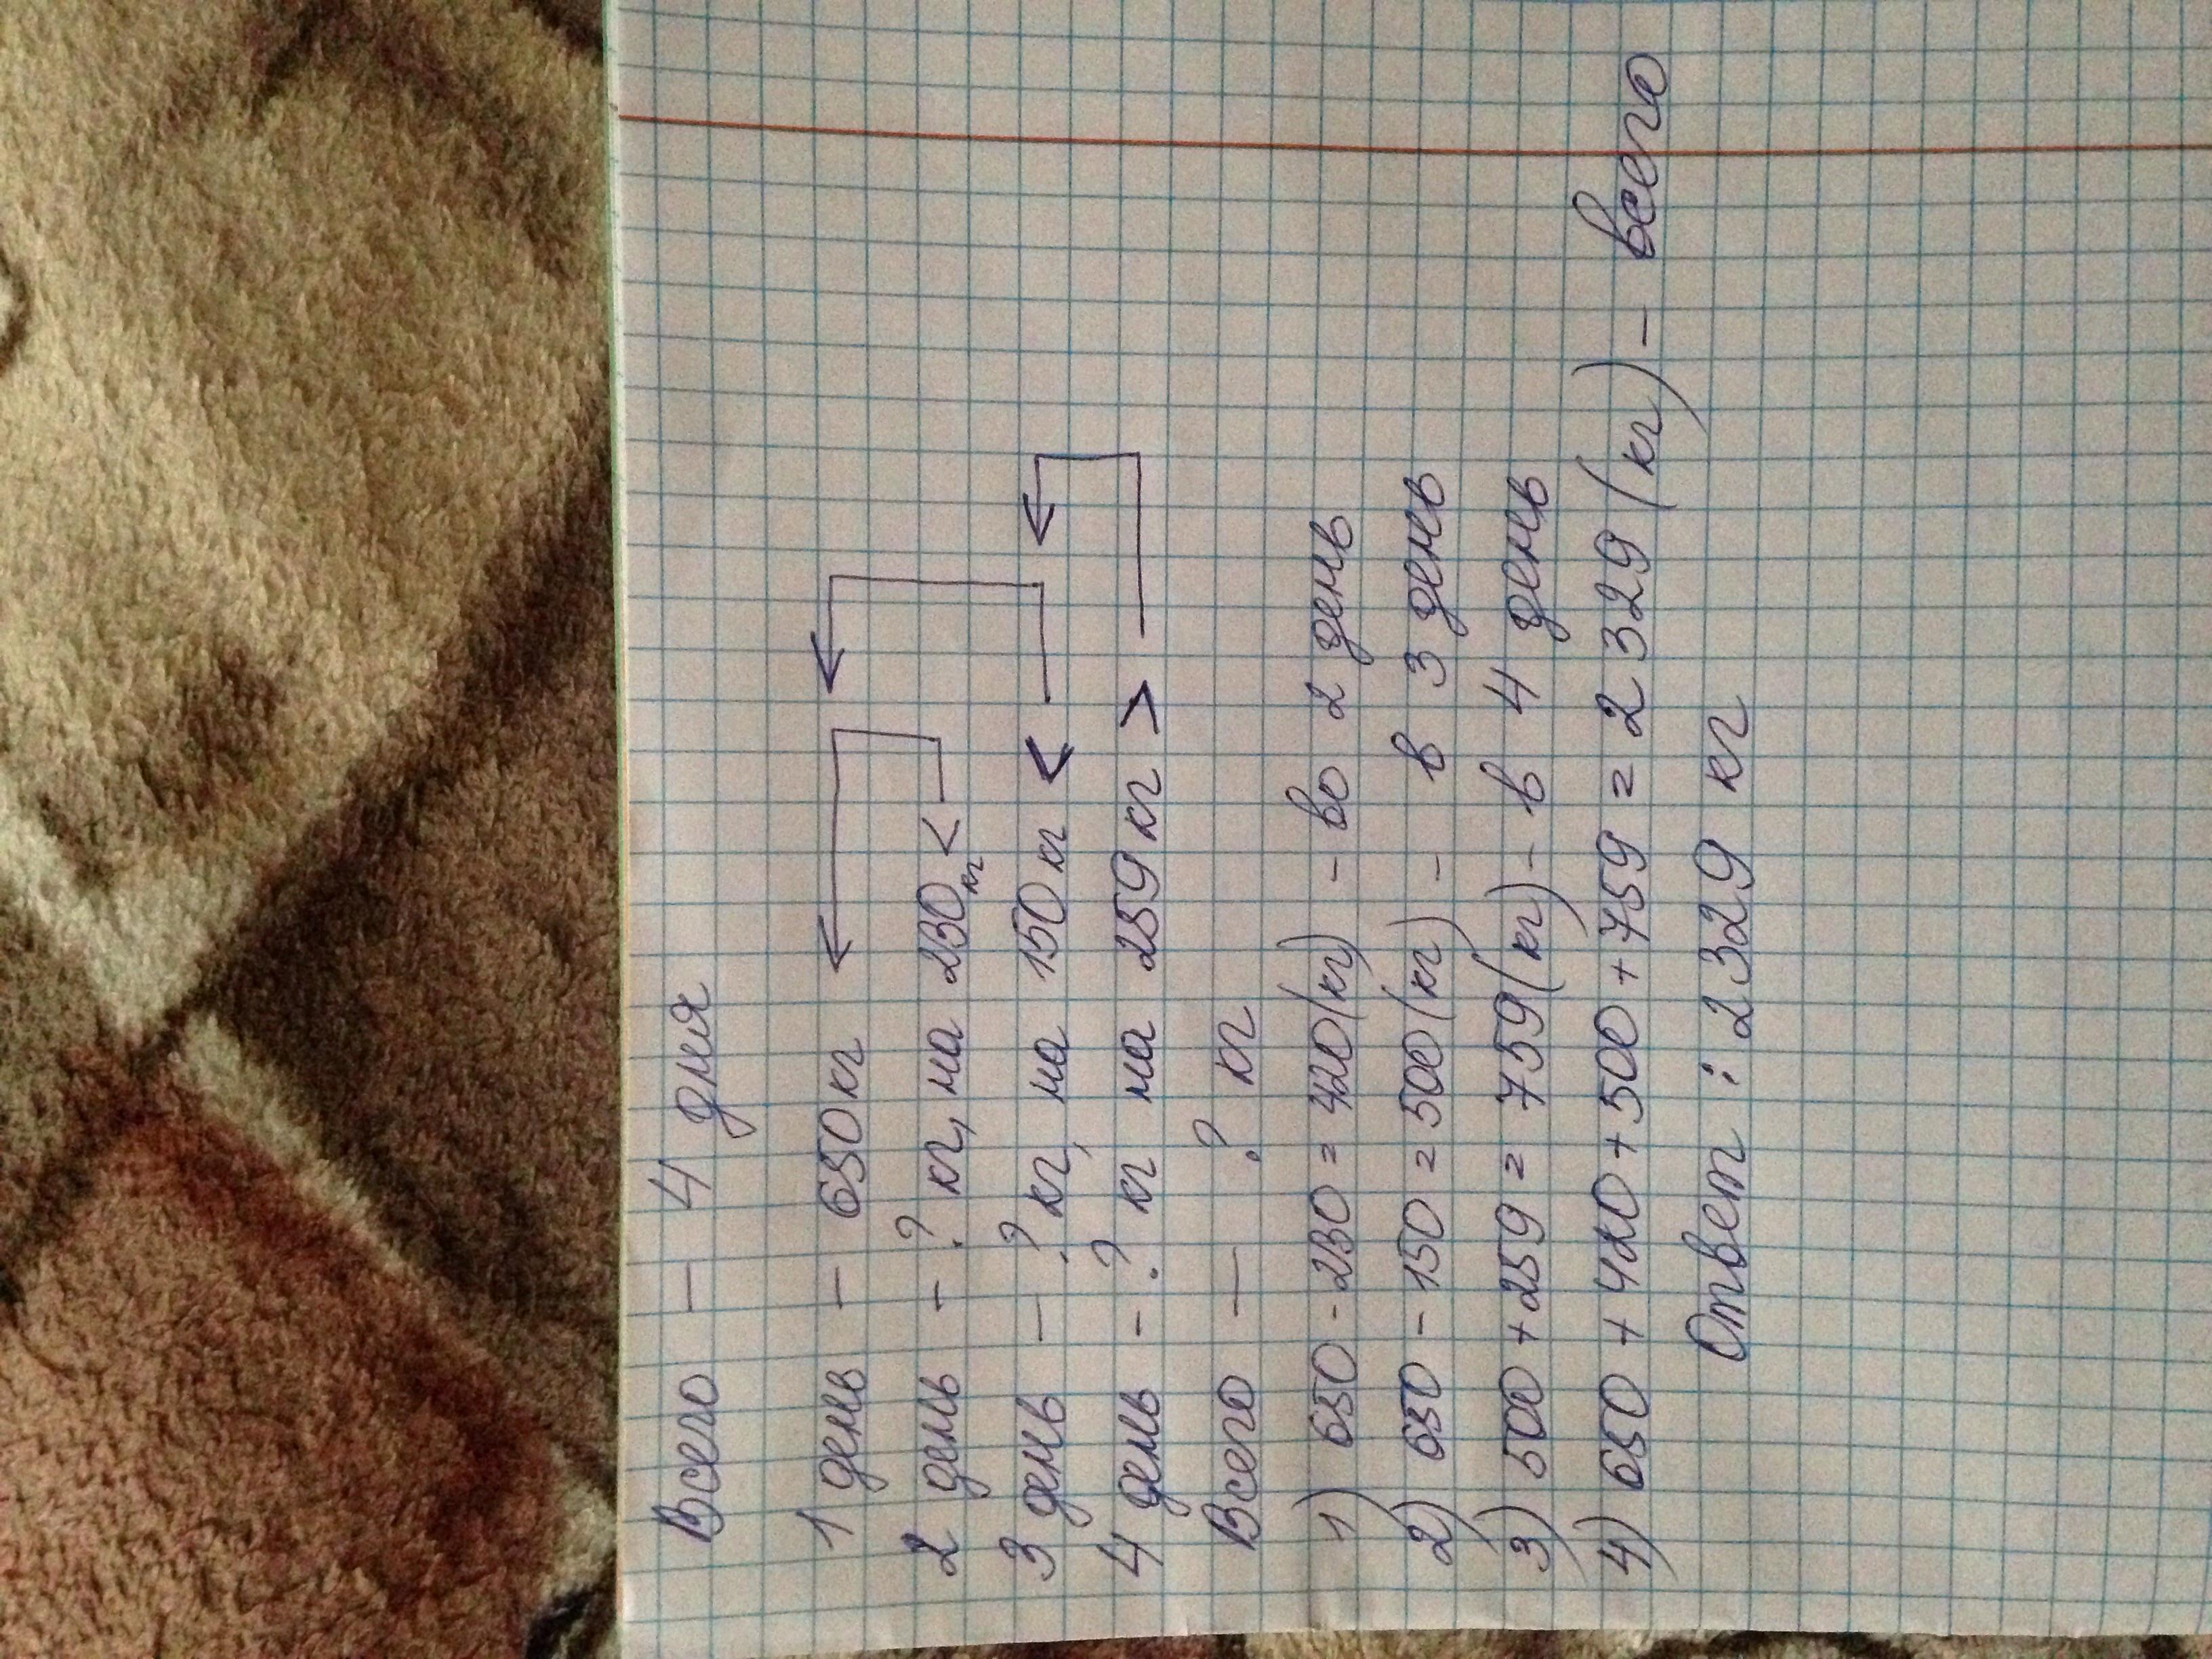 Всего — 4 дня
1 день — 650 кг
2 день — ? кг, на 230 кг <
3 день — ? кг, на 150 кг <
4 день — ? кг на 259 кг >
Всего — ? кг
1) 650 - 230 = 420 (кг) - во 2 день
2) 650 - 150 = 500 (кг) - в 3 день
3) 500 + 259 = 759 (кг) - в 4 день
4) 650 + 420 + 500 + 759 = 2 329 (кг) - всего
Ответ : 2 329 кг